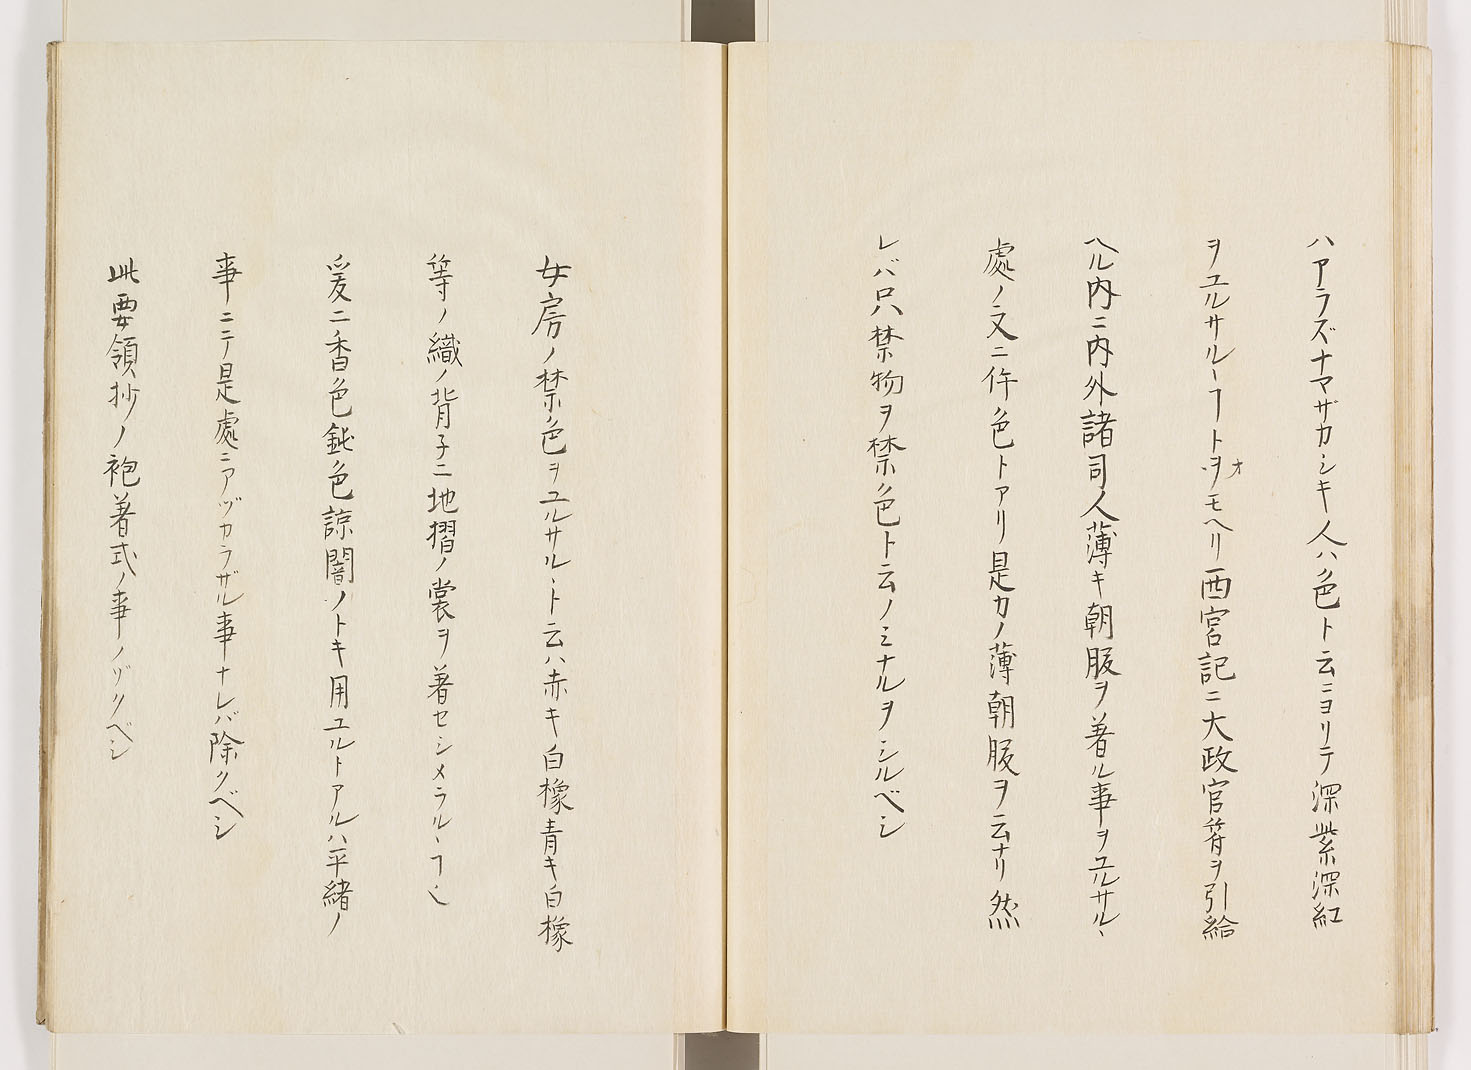 ハアラズナマザカシキ人ハ色ト云ニヨリテ深紫深紅
ヲユルサルヽヿトヲモヘリ西宮記ニ大政官符ヲ引給
オ
ヘル内ニ内外諸司人薄キ朝服ヲ著ル事ヲユルサルヽ
處ノ文ニ件色トアリ是カノ薄朝服ヲ云ナリ然
レバ只禁物ヲ禁色ト云ノミナルヲシルベシ
女房ノ禁色ヲユルサルヽト云ハ赤キ白橡青キ白橡
等ノ織ノ背子ニ地摺ノ裳ヲ著セシメラルヽヿ也
爰ニ香色鈍色諒闇ノトキ用ユルトアルハ平緒ノ
事ニテ是處ニアヅカラザル事ナレバ除クベシ
此要領抄ノ袍著式ノ事ノゾクベシ